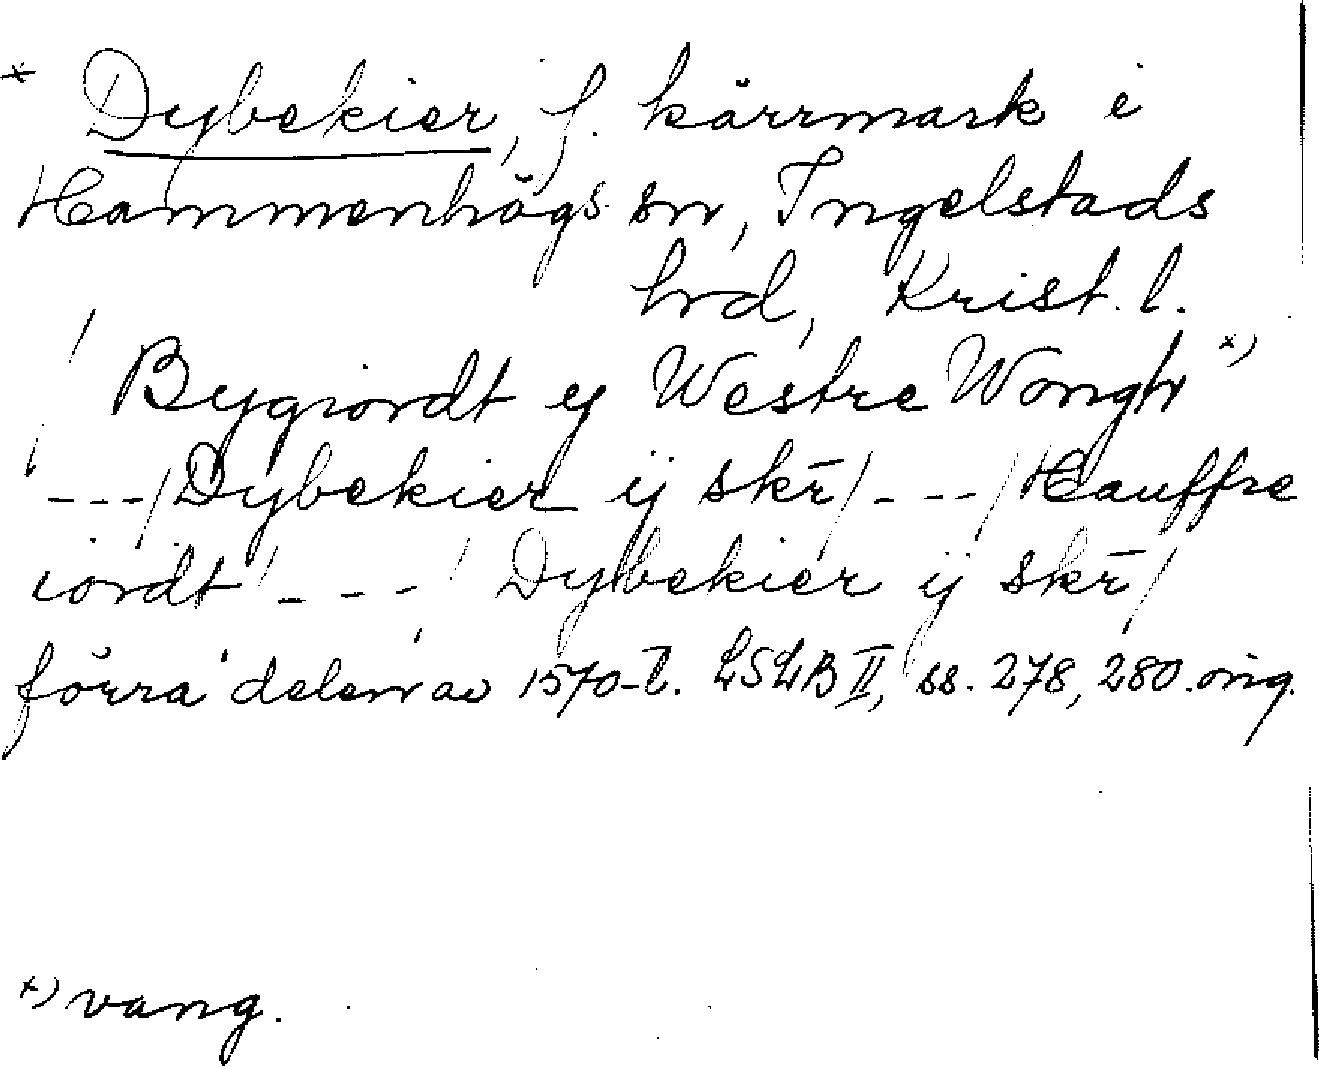 * Dybekier, f. kärrmark i
Hammenhögs sn, Ingelstads
hrd, Krist. l.
/ Bygiordt ey Westre Wongh x)
/ --- / Dybekier ij skr̄ / --- / Hauffre
iordt / --- / Dybekier ij skr̄ /
förra delen av 1570-t. LSLB II, ss. 278, 280. orig.
x) vang.